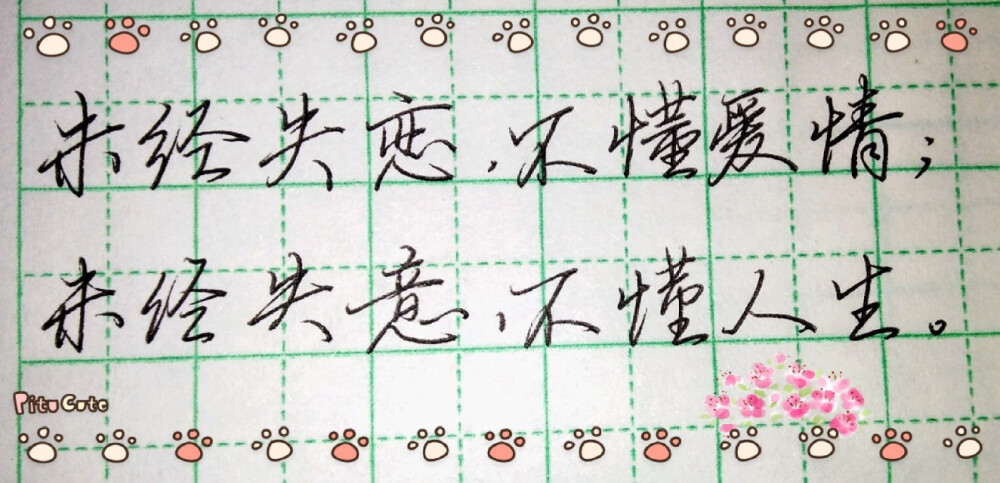 未经失恋,不懂爱情;
未经失意,不懂人生。
Pitu Cute